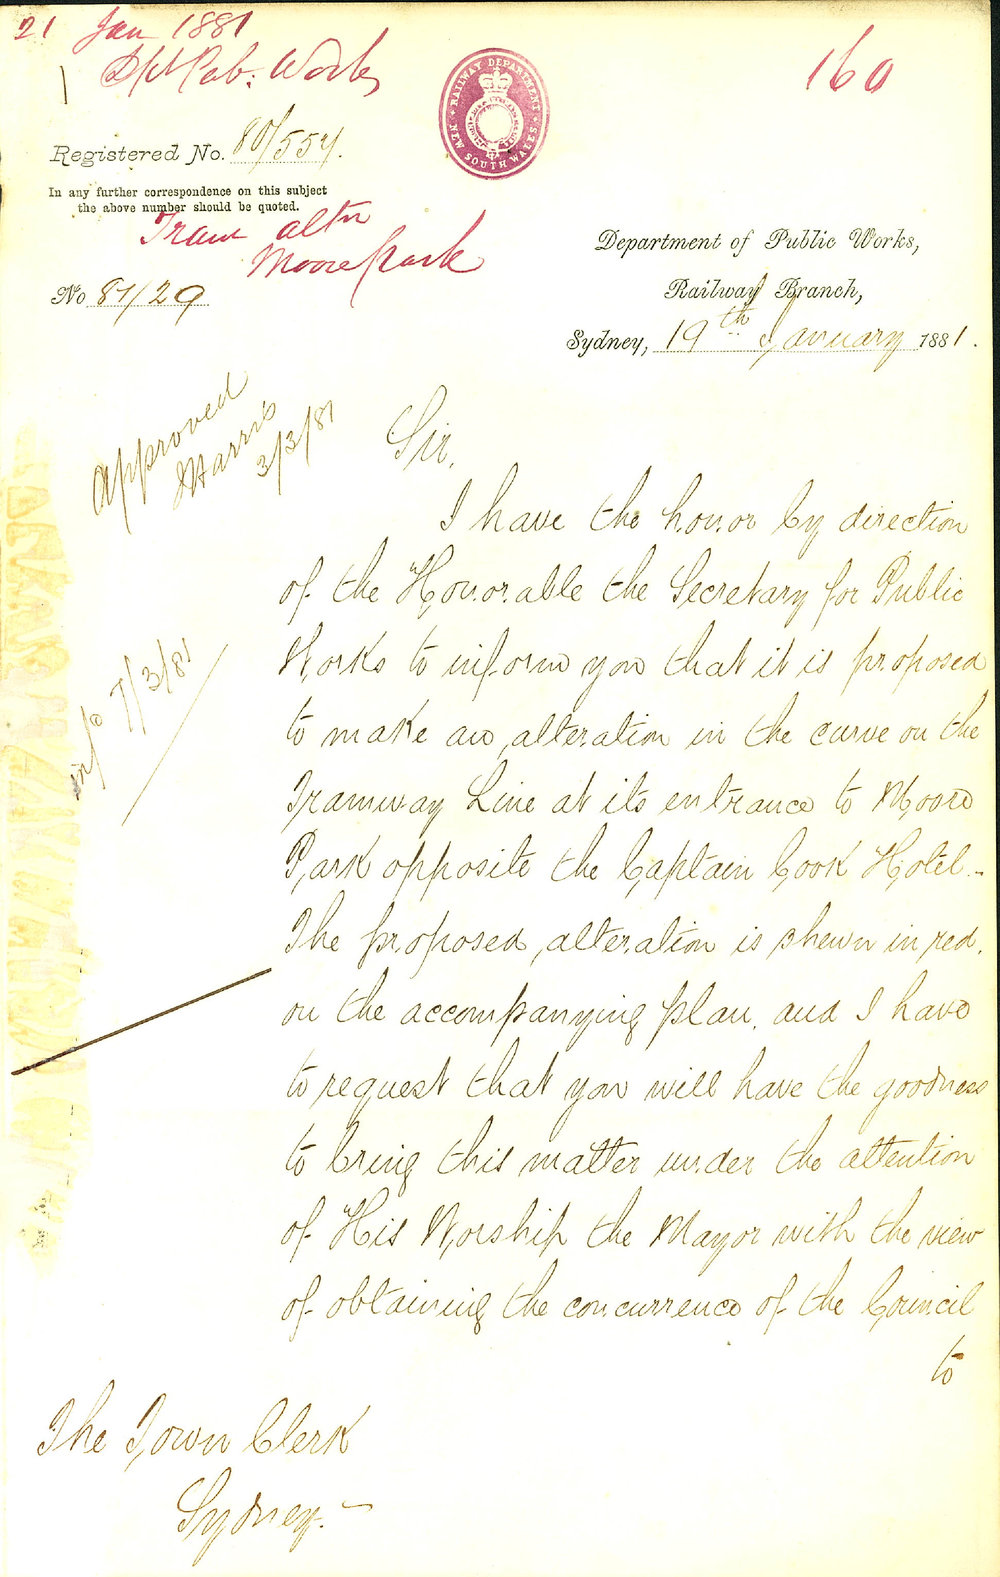 21 Jan 1881
Dpt Pub: Works
160
RAILWAY DEPARTMENT
NEW SOUTH WALES
Registered No. 80/554.
In any further correspondence on this subject
the above number should be quoted.
Tram altn
Moore Park
No 81/29
Department of Public Works,
Railway Branch,
Sydney, 19th January 1881.
Approved
Harris
3/3/81
Sir,
I have the honor by direction
of the Honorable the Secretary for Public
Works to inform you that it is proposed
to make an alteration in the curve on the
Tramway Line at its entrance to Moore
Park opposite the Captain Cook Hotel.-
The proposed alteration is shewn in red.
on the accompanying plan, and I have
to request that you will have the goodness
to bring this matter under the attention
of His Worship the Mayor with the view
of obtaining the concurrence of the Council
to
7/3/81
The Town Clerk
Sydney.-